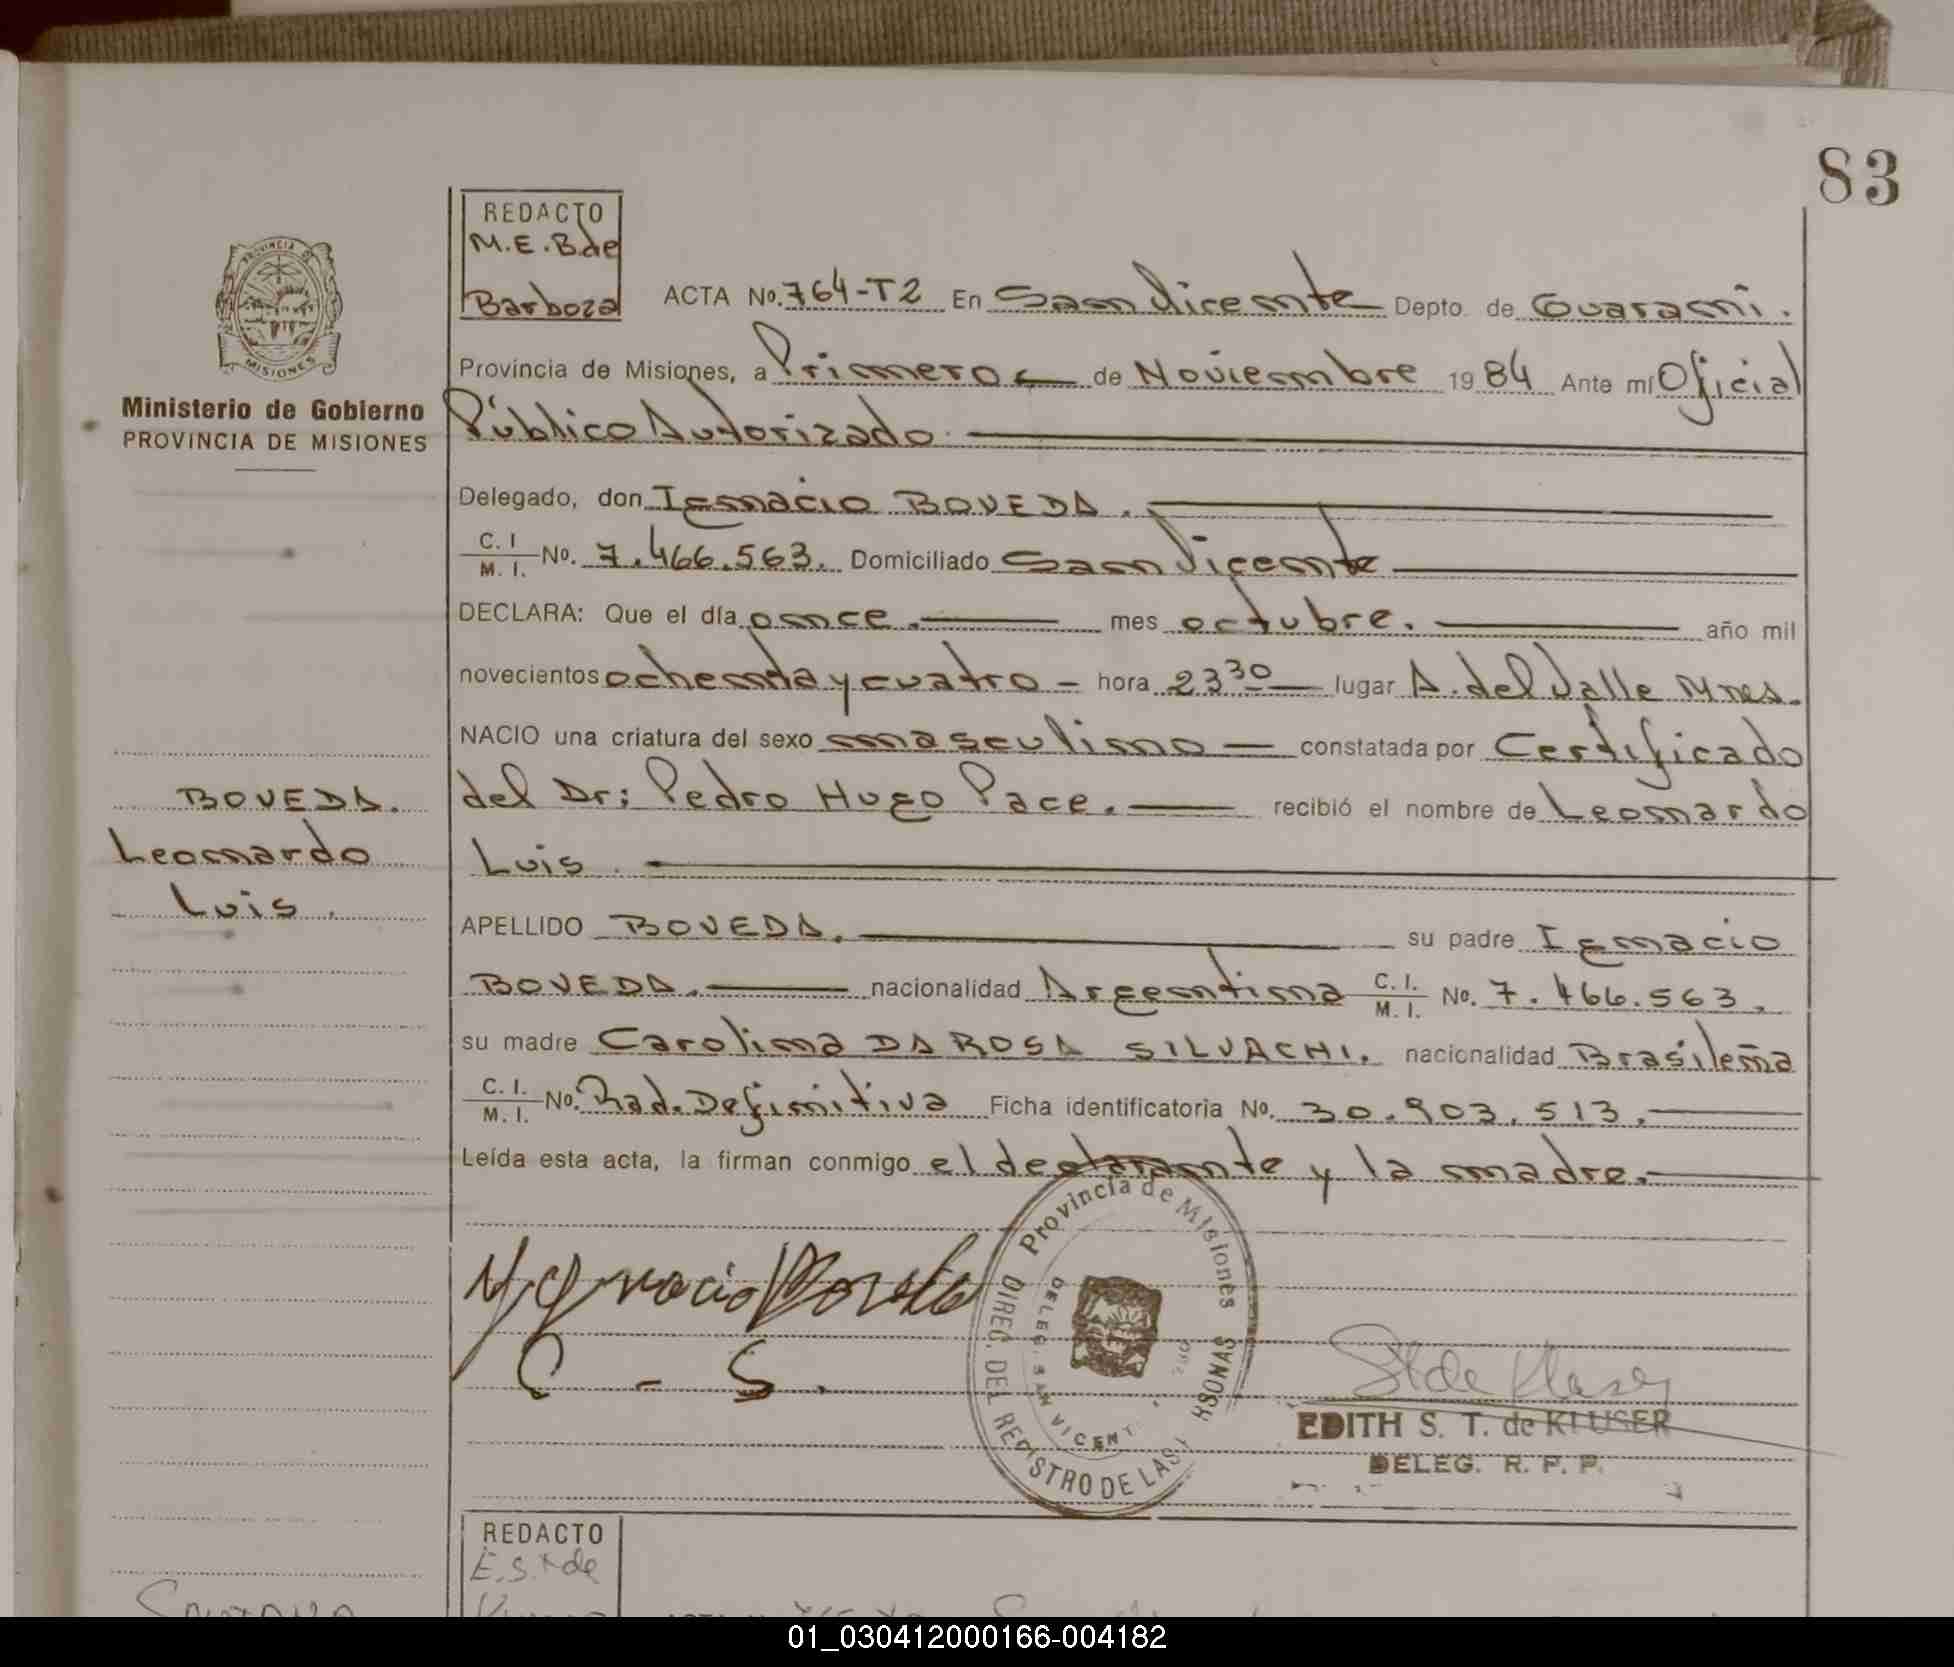 83
REDACTO
M.E.B.de
Barboza
ACTA No. 764-T2 En San Vicente Depto. de Guaraní.
Provincia de Misiones, a Primero de Noviembre 1984 Ante mí Oficial
Público Autorizado
PROVINCIA DE
MISIONES
Ministerio de Gobierno
PROVINCIA DE MISIONES
Delegado, don Ignacio BOVEDA.
C. I
M. I. No. 7.466.563. Domiciliado San Vicente
DECLARA: Que el día once. mes octubre. año mil
novecientos ochenta y cuatro - hora 23 30 lugar A. del Valle Mnes.
NACIO una criatura del sexo masculino constatada por Certificado
del Dr: Pedro Hugo Pace. recibió el nombre de Leonardo
Luis.
BOVEDA.
Leonardo
Luis.
APELLIDO BOVEDA. su padre Ignacio
BOVEDA. nacionalidad Argentina C. I.
M. I. No. 7.466.563.
su madre Carolina DA ROSA SILVACHI. nacionalidad Brasileña
C. I.
M. I. No. Rad. Definitiva Ficha identificatoria No. 30.903.513.
Leída esta acta, la firman conmigo el declarante y la madre.
Provincia de Misiones
DIREC. DEL REGISTRO DE LAS
DELEG. SAN VICENT
C - S.
EDITH S. T. de KLUSER
DELEG. R. P. P.
REDACTO
E.S.T de
01_030412000166-004182